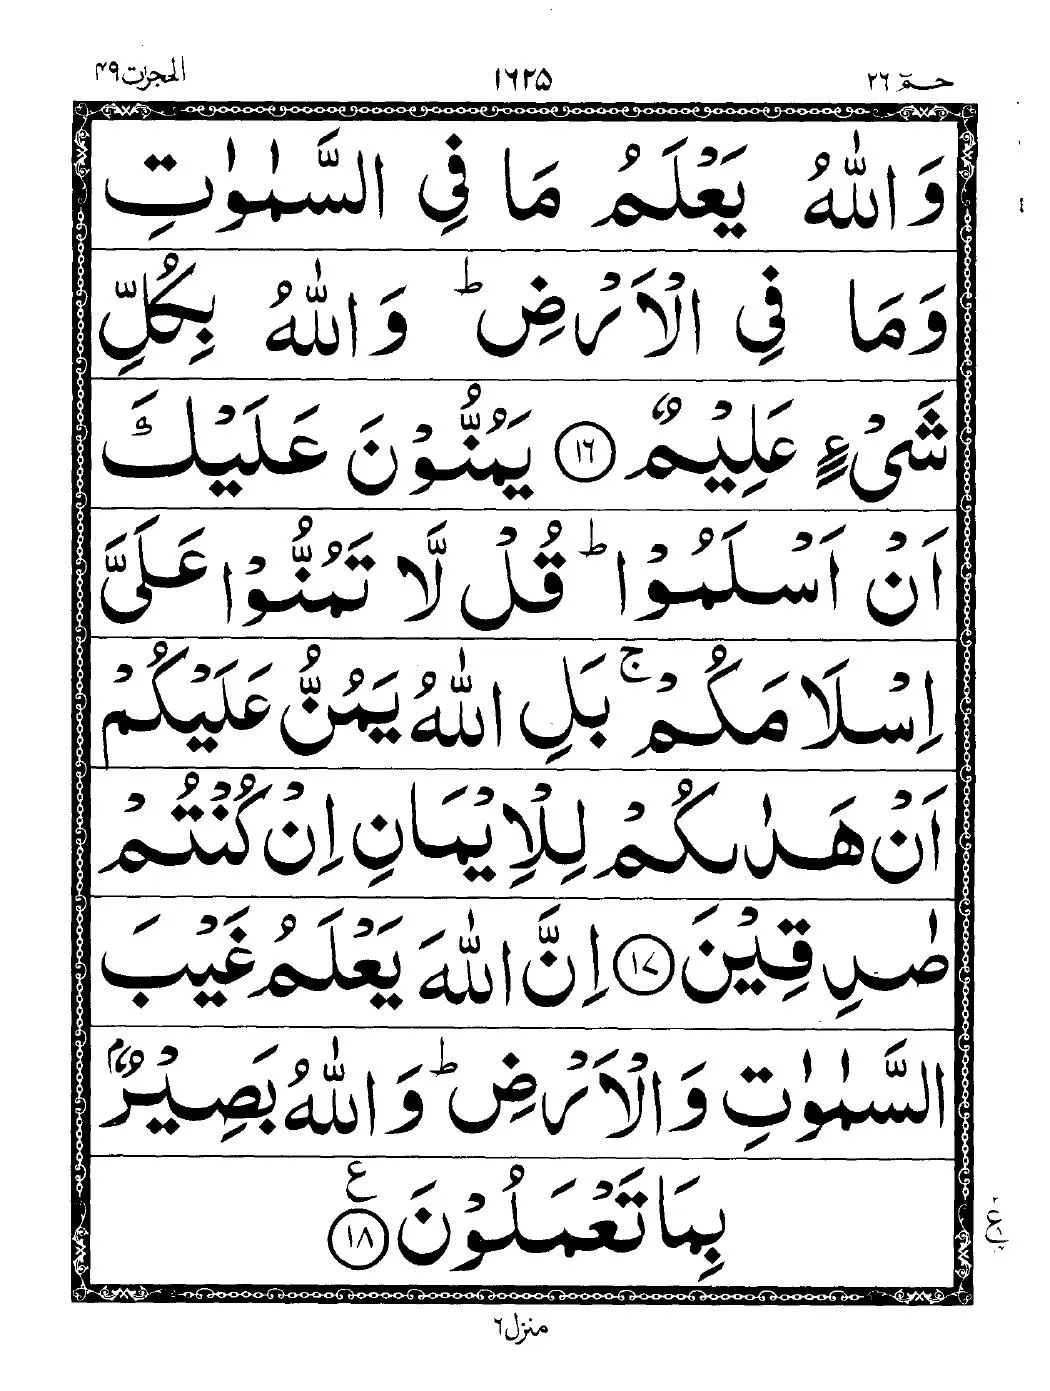 حٰمٓ ٢٦
١٦٢٥
الحجرٰت ٤٩
وَاللّٰهُ يَعْلَمُ مَا فِي السَّمٰوٰتِ
وَمَا فِي الْاَرْضِ ؕ وَاللّٰهُ بِكُلِّ
شَيْءٍ عَلِيْمٌ ١٦ يَمُنُّوْنَ عَلَيْكَ
اَنْ اَسْلَمُوْا ؕ قُلْ لَّا تَمُنُّوْا عَلَيَّ
اِسْلَامَكُمْ ۚ بَلِ اللّٰهُ يَمُنُّ عَلَيْكُمْ
اَنْ هَدٰىكُمْ لِلْاِيْمَانِ اِنْ كُنْتُمْ
صٰدِقِيْنَ ١٧ اِنَّ اللّٰهَ يَعْلَمُ غَيْبَ
السَّمٰوٰتِ وَالْاَرْضِ ؕ وَاللّٰهُ بَصِيْرٌۢ
بِمَا تَعْمَلُوْنَ ١٨ ع
منزل ٦